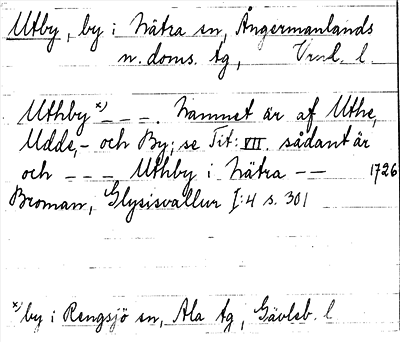 Utby, by i Nätra sn, Ångermanlands
n. doms. tg, Vnrl. l.
Uthby x) – – –. Namnet är af Uthe,
Udde, – och By; se Tit: VII. sådant är
och – – – Uthby i Nätra – – 1726
Broman, Glysisvallur I:4 s. 301
x) by i Rengsjö sn, Ala tg, Gävleb. l